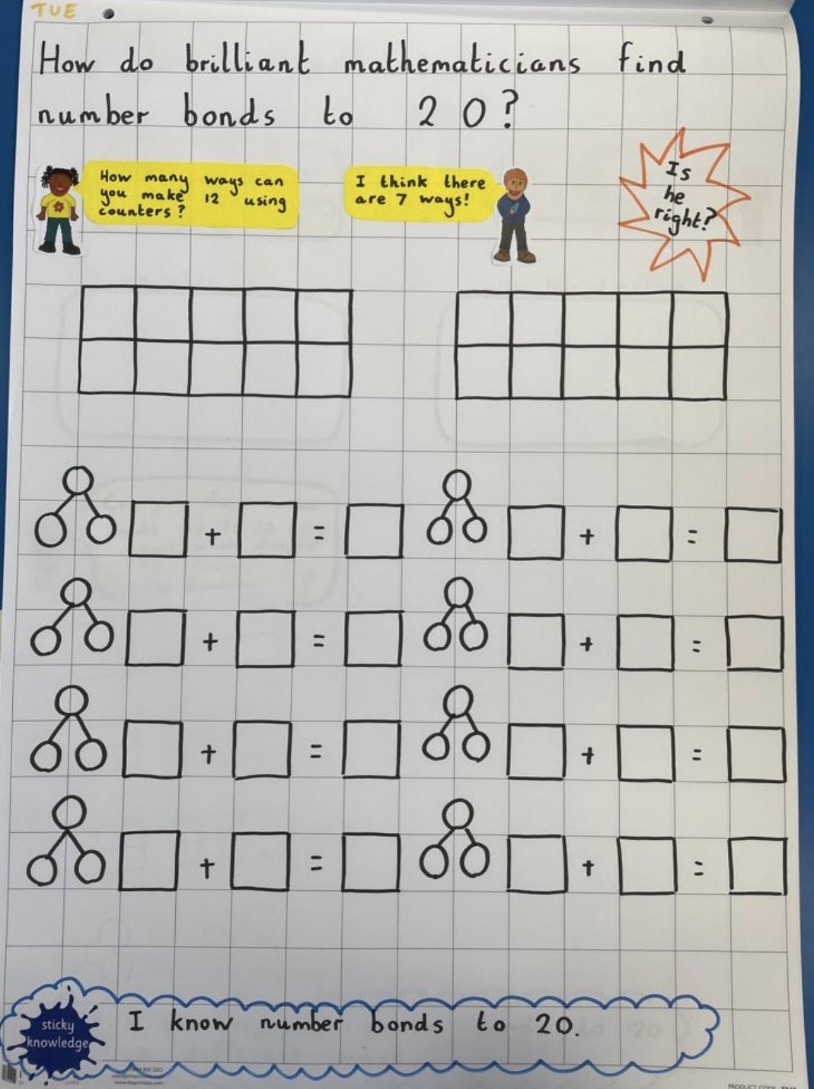 TUE
How do brilliant mathematicians find
number bonds to 20?
How many ways can
you make 12 using
counters?
I think there
are 7 ways!
Is
he
right?
+ =
+ =
+ =
+ =
+ =
+ =
+ =
+ =
sticky
knowledge
I know number bonds to 20.